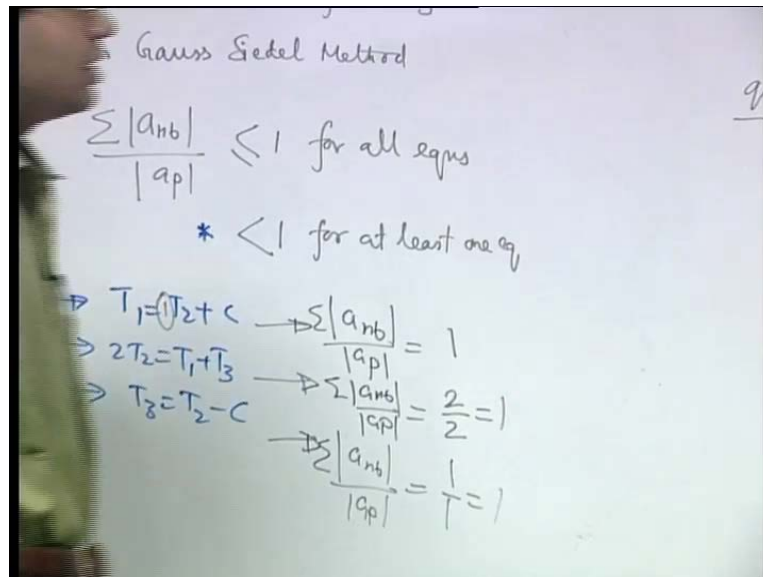 Gauss Siedel Method
Σ|anb| / |ap| ≤ 1 for all eqns
* < 1 for at least one eq
T1 = 1T2 + C → Σ|anb| / |ap| = 1
2T2 = T1 + T3 → Σ|anb| / |ap| = 2/2 = 1
T3 = T2 - C → Σ|anb| / |ap| = 1/1 = 1